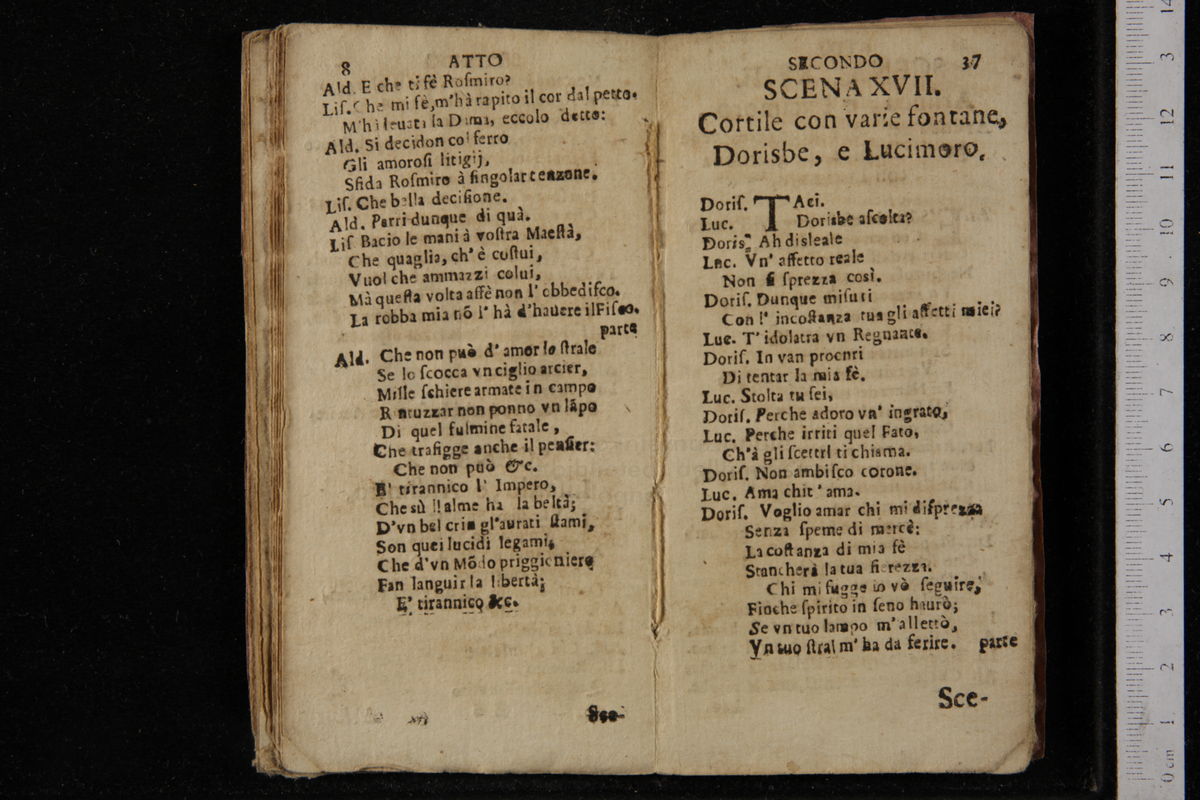 8 ATTO
Ald. E che ti fè Roſmiro?
Liſ. Che mi fè, m'hà rapito il cor dal petto.
M'hà leuata la Dama, eccolo detto:
Ald. Si decidon col ferro
Gli amoroſi litigij,
Sfida Roſmiro à ſingolar tenzone.
Liſ. Che bella deciſione.
Ald. Parti dunque di quà.
Liſ Bacio le mani à voſtra Maeſtà,
Che quaglia, ch'è coſtui,
Vuol che ammazzi colui,
Mà queſta volta affè non l' obbediſco.
La robba mia nõ l' hà d'hauere il Fiſco.
parte
Ald. Che non può d' amor lo ſtrale
Se lo ſcocca vn ciglio arcier,
Mille ſchiere armate in campo
Rintuzzar non ponno vn lãpo
Di quel fulmine fatale,
Che trafigge anche il penſier:
Che non può &c.
E' tirannico l' Impero,
Che sù ll alme ha la beltà;
D'vn bel crin gl'aurati ſtami,
Son quei lucidi legami,
Che d'vn Mõdo priggioniero
Fan languir la libertà;
E' tirannico &c.
Sce-
SECONDO 37
SCENA XVII.
Cortile con varie fontane,
Dorisbe, e Lucimoro.
Doriſ. TAci.
Luc. Dorisbe aſcolta?
Doris. Ah disleale
Luc. Vn' affetto reale
Non ſi ſprezza così.
Doriſ. Dunque miſuri
Con l' incoſtanza tua gli affetti miei?
Luc. T' idolatra vn Regnante.
Doriſ. In van procuri
Di tentar la mia fè.
Luc. Stolta tu ſei,
Doriſ. Perche adoro vn' ingrato,
Luc. Perche irriti quel Fato,
Ch'à gli ſcettri ti chiama.
Doriſ. Non ambiſco corone.
Luc. Ama chi t' ama.
Doriſ. Voglio amar chi mi diſprezza
Senza ſpeme di mercè:
La coſtanza di mia fè
Stancherà la tua fierezza.
Chi mi fugge io vò ſeguire,
Finche ſpirito in ſeno haurò;
Se vn tuo lampo m'allettò,
Vn tuo ſtral m' ha da ferire. parte
Sce-